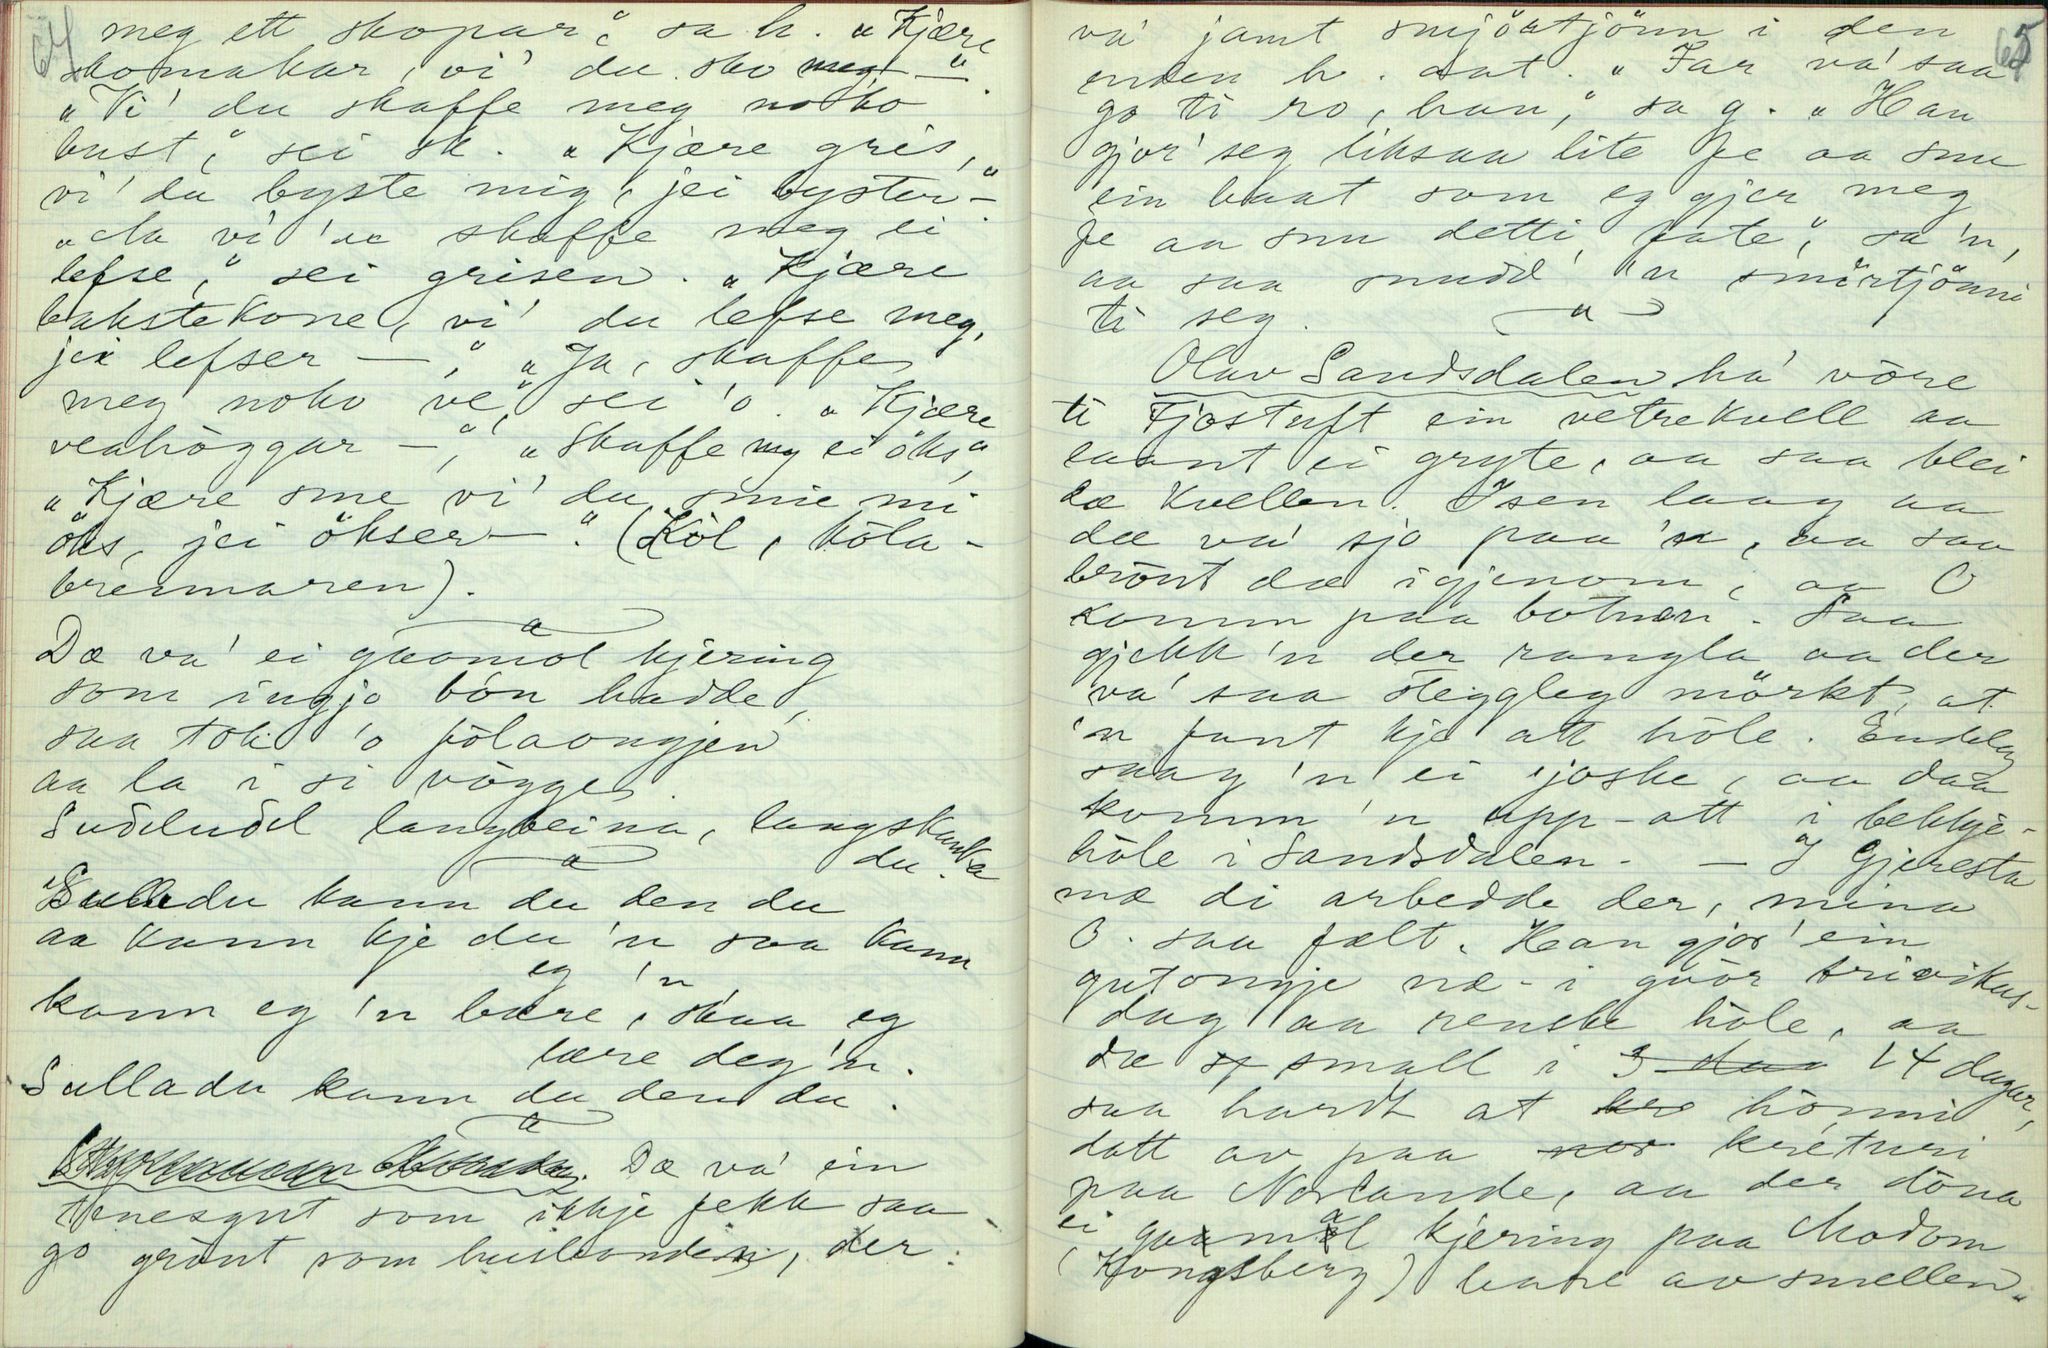 64
meg ett skopar", sa h. "Kjære
skomakar, vi' du sko meg —"
"Vi' du skaffe meg noko
bust", sei sk. "Kjære gris,
vi' du byste mig, jei byster —"
"Ja vi 'du skaffe meg ei
lefse," sei grisen. "Kjære
bakstekone, vi' du lefse meg,
jei lefser —," "Ja, skaffe
meg noko ve", sei 'o. "Kjære
veahöggar —," "Skaffe meg ei öks"
"Kjære sme vi' du smie mi
öks, jei ökser —." (Köl, köla-
brennaren).
Dæ va' ei gaamol kjering
som ingjo bón hadde,
saa tok 'o fölaongjen
aa la i si vögge.
Sudeludel langbeina, langskanka
du.
Sulladu kann du den du
aa kann kje du 'n saa kann
eg 'n
kann eg 'n bære, skaa eg
lære deg 'n.
Sulladu kann du den du.
Dæ va' ein
tenesgut som ikkje fekk saa
go gröut som husbonden, der
65
va' jamt smjörtjönn i den
enden h. aat. "Far va' saa
go ti ro, han," sa g. "Han
gjor' seg liksaa lite fe aa snu
ein baat som eg gjer meg
fe aa snu detti fate", sa 'n,
aa saa snudd' 'n smörtjönni
ti seg.
Olav Sandsdalen ha' vöre
ti Tjostuft ein vetrekvell aa
laant ei gryte, aa saa blei
dæ kvellen. Isen laag aa
dæ va' sjo paa 'n, aa saa
brönt dæ igjenom, aa O
komm paa botnen. Saa
gjekk 'n der rangla aa der
va' saa steggleg mörkt, at
'n fant kje att höle. Endeleg
saag 'n ei joske, aa daa
komm 'n upp-att i bekkje-
höle i Sandsdalen. — I Gjeresta
mæ di arbedde der, mina
O. saa fælt. Han gjor' ein
gutongje næ-i gvor trivikus-
dag aa renske höle, aa
dæ small i 3 daa 14 dagar,
saa hardt at hönni
datt av paa kreturi
paa Norlande, aa der döna
ei gaamal kjering paa Modom
(Kongsberg) bare av smellen.